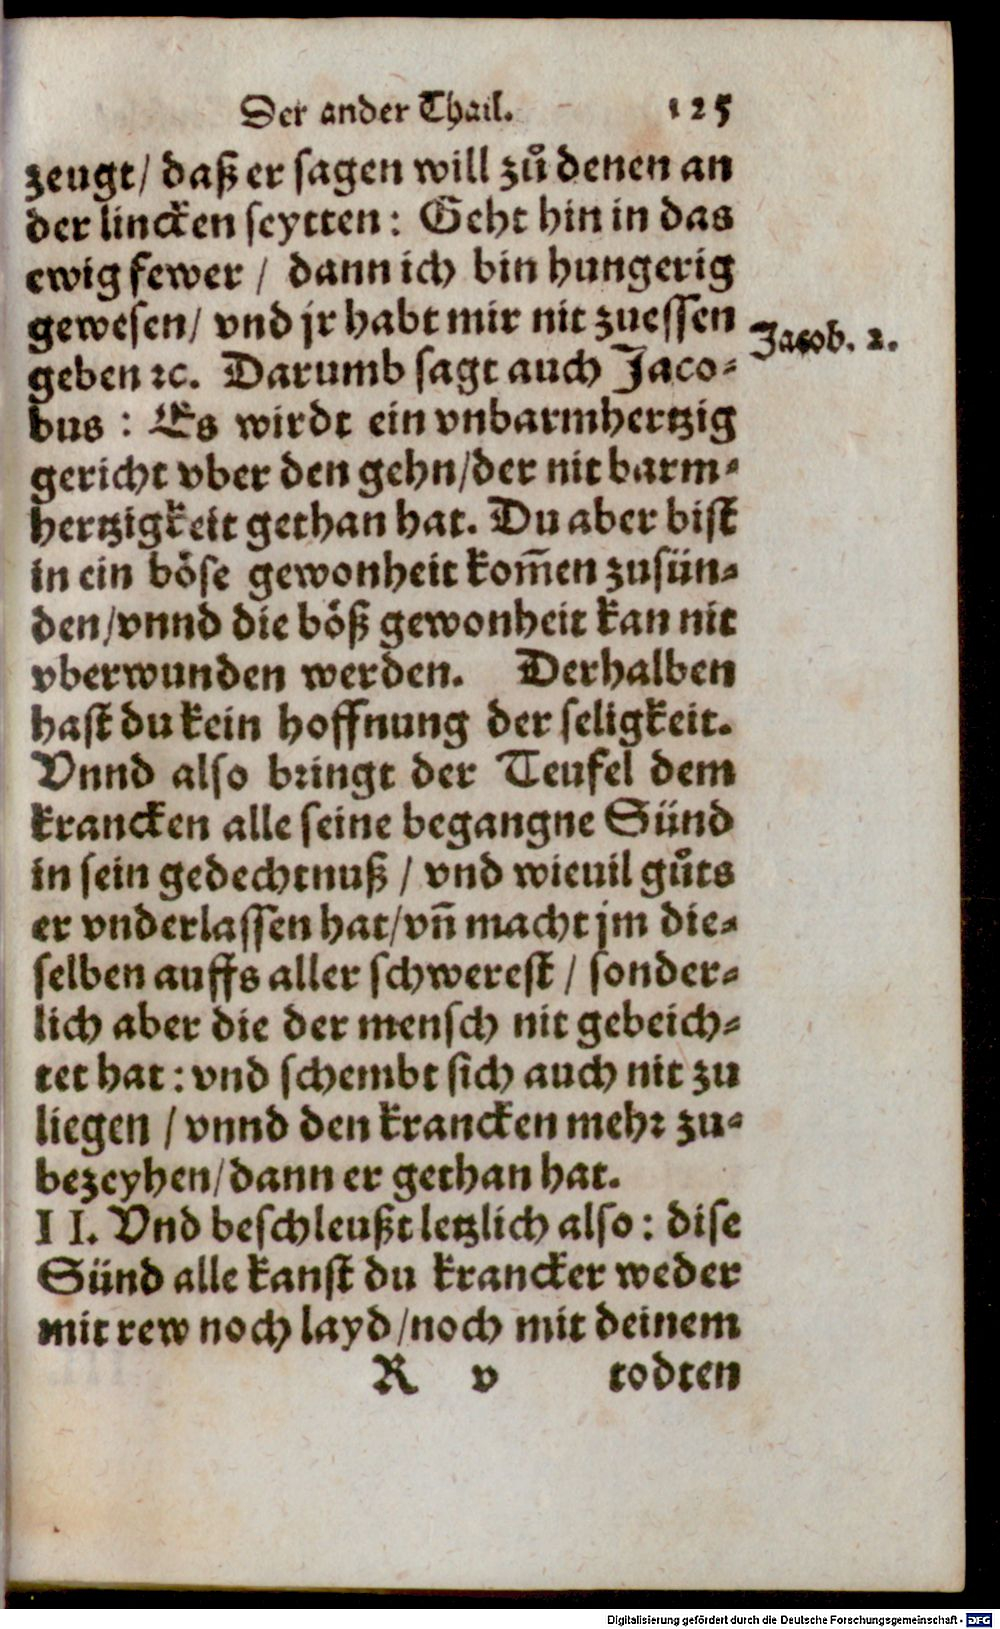 Der ander Thail. 125
zeugt/ daß er sagen will zů denen an
der lincken seytten: Geht hin in das
ewig fewer / dann ich bin hungerig
gewesen/ vnd jr habt mir nit zuessen
Jacob. 2.
geben ꝛc. Darumb sagt auch Jaco-
bus : Es wirdt ein vnbarmhertzig
gericht vber den gehn/der nit barm-
hertzigkeit gethan hat. Du aber bist
in ein böse gewonheit kom̃en zusün-
den/vnnd die böß gewonheit kan nit
vberwunden werden. Derhalben
hast du kein hoffnung der seligkeit.
Vnnd also bringt der Teufel dem
krancken alle seine begangne Sünd
in sein gedechtnuß / vnd wieuil gůts
er vnderlassen hat/vn̄ macht jm die-
selben auffs aller schwerest / sonder-
lich aber die der mensch nit gebeich-
tet hat : vnd schembt sich auch nit zu
liegen / vnnd den krancken mehr zu-
bezeyhen/dann er gethan hat.
II. Vnd beschleußt letzlich also : dise
Sünd alle kanst du krancker weder
mit rew noch layd/noch mit deinem
R v todten
Digitalisierung gefördert durch die Deutsche Forschungsgemeinschaft - DFG